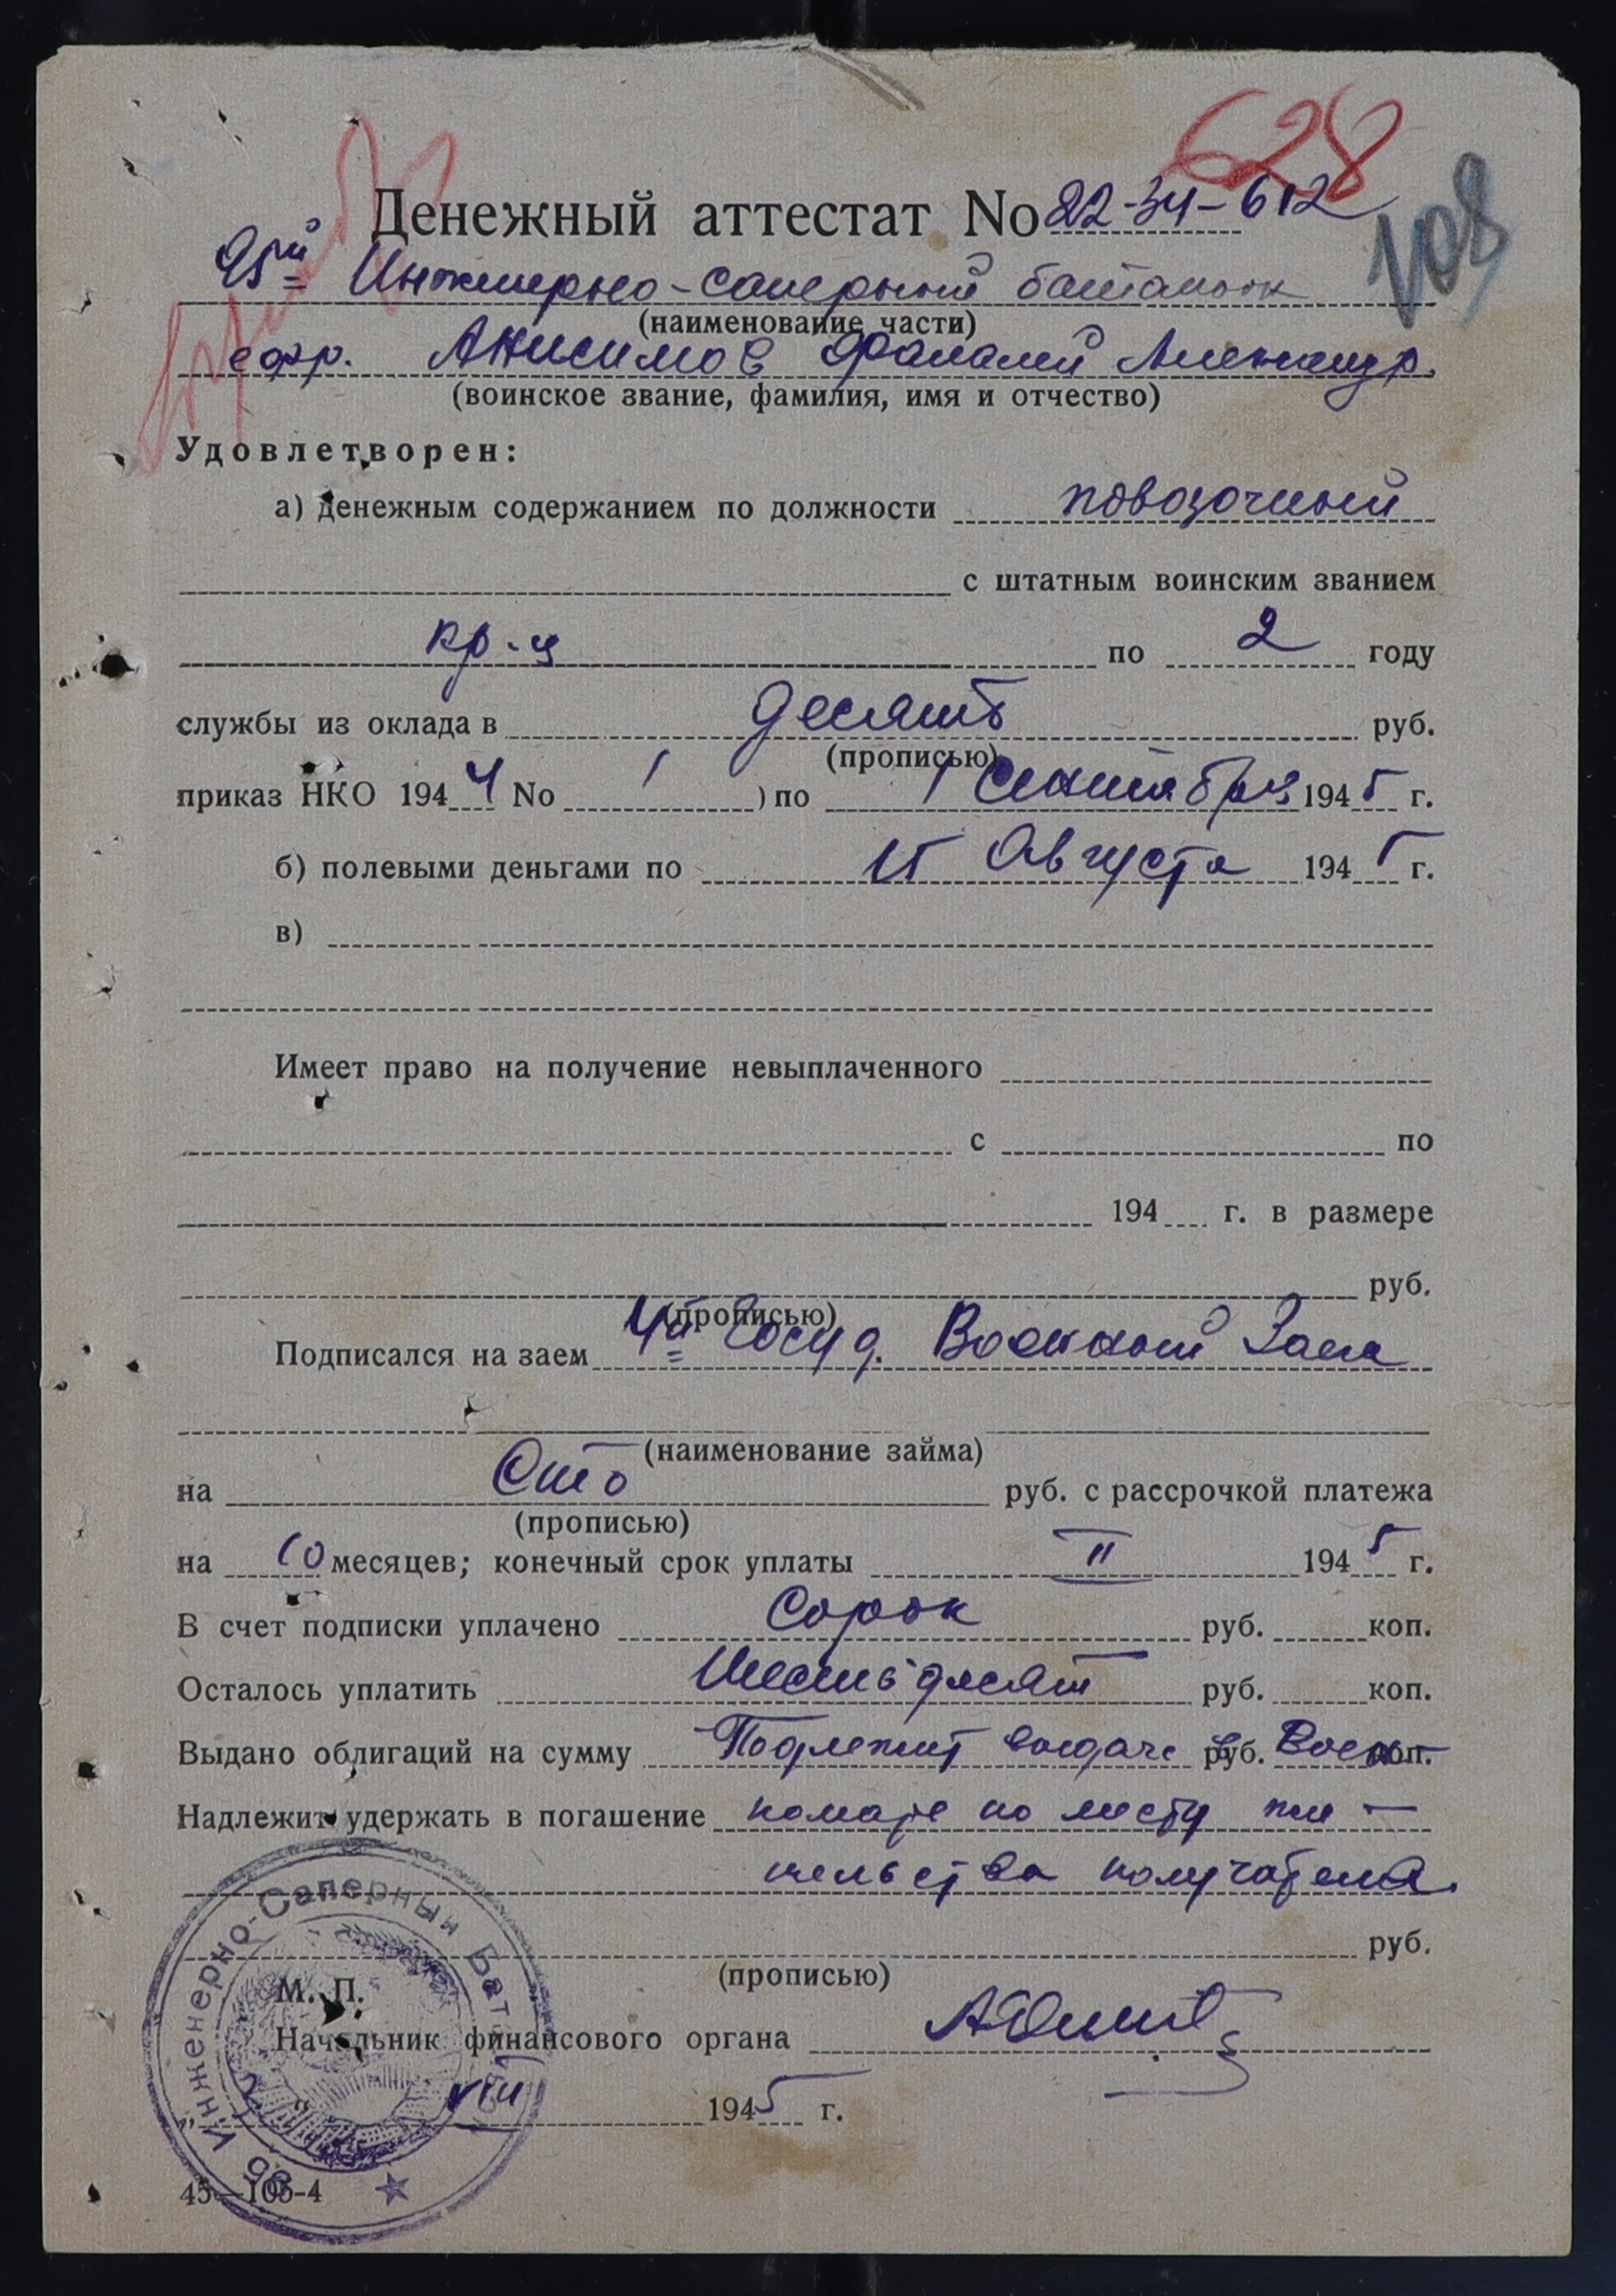 628
Денежный аттестат No 22-34-612
108
95й Инженерно-саперный батальон
(наименование части)
ефр. Анисимов Фалалей Александр.
(воинское звание, фамилия, имя и отчество)
Удовлетворен:
а) денежным содержанием по должности повозочный
с штатным воинским званием
кр-ц по 2 году
службы из оклада в десять руб.
(прописью)
приказ НКО 1944 No 1 ) по 1 Сентября 1945 г.
б) полевыми деньгами по 15 Августа 1945 г.
в)
Имеет право на получение невыплаченного
с по
194 г. в размере
руб.
(прописью)
Подписался на заем 4й Госуд. Военный Заем
(наименование займа)
на Сто руб. с рассрочкой платежа
(прописью)
на 10 месяцев; конечный срок уплаты 1945 г.
В счет подписки уплачено Сорок руб. коп.
Осталось уплатить Шестьдесят руб. коп.
Выдано облигаций на сумму Подлежит выдаче в руб. Воен- коп.
Надлежит удержать в погашение комате по месту жи-
тельства получателя.
руб.
(прописью)
М. П.
Начальник финансового органа
VIII 1945 г.
45—105-4
Инженерно-Саперный Бат